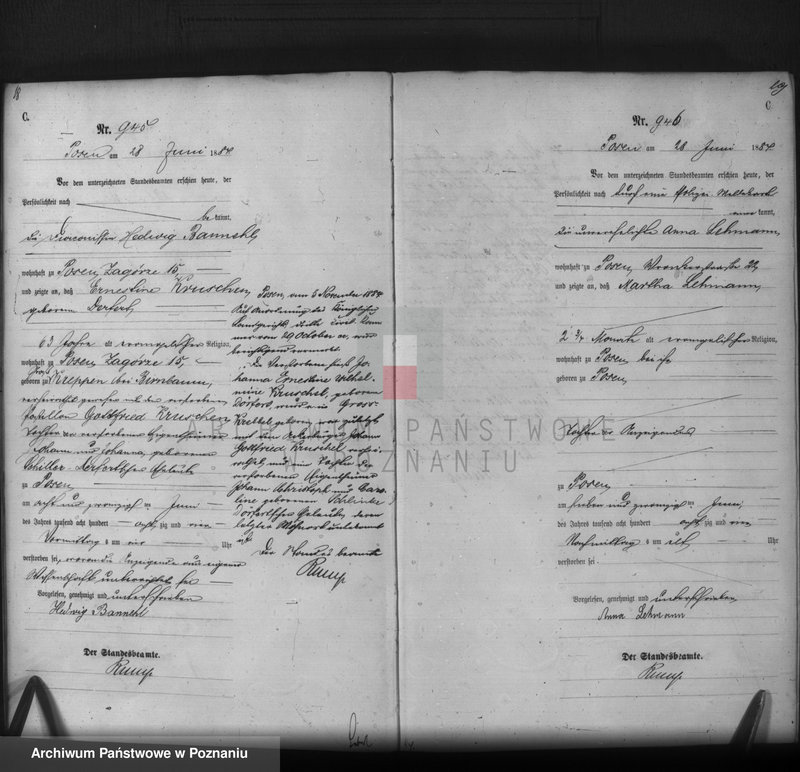 18
C.
Nr. 945
Posen am 28 Juni 1884
Vor dem unterzeichneten Standesbeamten erschien heute, der
Persönlichkeit nach
be kannt,
die Diaconissin Hedwig Bannehl,
wohnhaft zu Posen, Zagórze 15,
und zeigte an, daß Ernestine Kruschen,
geborene Derfert
63 Jahre alt evangelischer Religion,
wohnhaft zu Posen, Zagórze 15,
geboren zu Groß Kreppen bei Birnbaum,
verheirathet gewesen mit dem verstorbenen
Gottfried Kruschen
Tochter der verstorbenen Eigenthümer
Johann und Johanna, geborenen
Schiller-Derfertschen Eheleute
zu Posen
am acht und zwanzigsten Juni
des Jahres tausend acht hundert acht zig und vier
Vormittag s um vier Uhr
verstorben sei, wovon die Anzeigende aus eigener
Wissenschaft unterrichtet sei
Vorgelesen, genehmigt und unterschrieben
Hedwig Bannehl
Der Standesbeamte.
Rump
Posen, am 5 November 1884
Auf Anordnung des Königlichen
Landgerichts, dritte Civil Kam
mer vom 29 October
berichtigend vermerkt
Die Verstorbene hieß Jo-
hanna Ernestine Wilhel-
mine Kruschel, geborene
Dörfert, Gross-
Krebbel geboren,
mit dem Johann
Gottfried Kruschel verhei-
rathet und eine Tochter der
verstorbenen Eigenthümer
Johann Christoph und Caro-
line geborenen
Dörfertschen Eheleute, deren
letzter Wohnort unbekannt
ist
Der Standesbeamte
Rump
19
C.
Nr. 946
Posen am 28 Juni 1884
Vor dem unterzeichneten Standesbeamten erschien heute, der
Persönlichkeit nach durch eine Polizei Meldekarte
aner kannt,
die unverehelichte Anna Lehmann,
wohnhaft zu Posen, Wronkerstraße 22,
und zeigte an, daß Martha Lehmann,
2 3/4 Monate alt evangelischer Religion,
wohnhaft zu Posen bei ihr
geboren zu Posen,
Tochter der Anzeigenden
zu Posen
am sieben und zwanzigsten Juni
des Jahres tausend acht hundert acht zig und vier
Nachmittag s um elf Uhr
verstorben sei
Vorgelesen, genehmigt und unterschrieben
Anna Lehmann
Der Standesbeamte.
Rump
ARCHIWUM PAŃSTWOWE
W POZNANIU
Archiwum Państwowe w Poznaniu